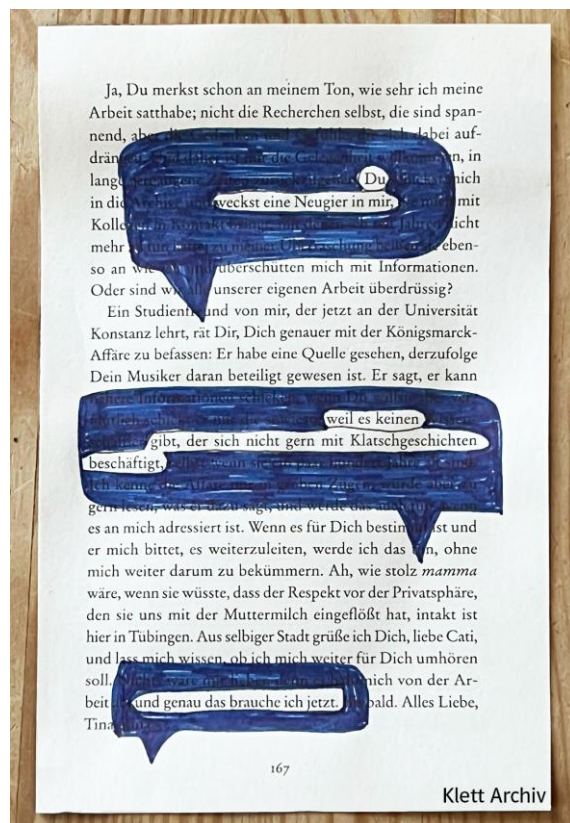 Ja, Du merkst schon an meinem Ton, wie sehr ich meine
Arbeit satthabe; nicht die Recherchen selbst, die sind span-
nend, aber die Gedanken und dabei auf-
die Gelegenheit, in
lang Du mich
in die weckst eine Neugier in mir, mit
Kolle nicht
mehr zu meiner Überraschung eben-
so an wie und überschütten mich mit Informationen.
Oder sind wir alle unserer eigenen Arbeit überdrüssig?
Ein Studienfreund von mir, der jetzt an der Universität
Konstanz lehrt, rät Dir, Dich genauer mit der Königsmarck-
Affäre zu befassen: Er habe eine Quelle gesehen, derzufolge
Dein Musiker daran beteiligt gewesen ist. Er sagt, er kann
nähere Informationen schicken, wenn Du
weil es keinen
gibt, der sich nicht gern mit Klatschgeschichten
beschäftigt,
Ich kenne die Affäre
gern lesen, was er dazu sagt, und werde das
es an mich adressiert ist. Wenn es für Dich bestimmt ist und
er mich bittet, es weiterzuleiten, werde ich das tun, ohne
mich weiter darum zu bekümmern. Ah, wie stolz mamma
wäre, wenn sie wüsste, dass der Respekt vor der Privatsphäre,
den sie uns mit der Muttermilch eingeflößt hat, intakt ist
hier in Tübingen. Aus selbiger Stadt grüße ich Dich, liebe Cati,
und lass mich wissen, ob ich mich weiter für Dich umhören
soll. mich von der Ar-
beit und genau das brauche ich jetzt. bald. Alles Liebe,
Tina
167
Klett Archiv